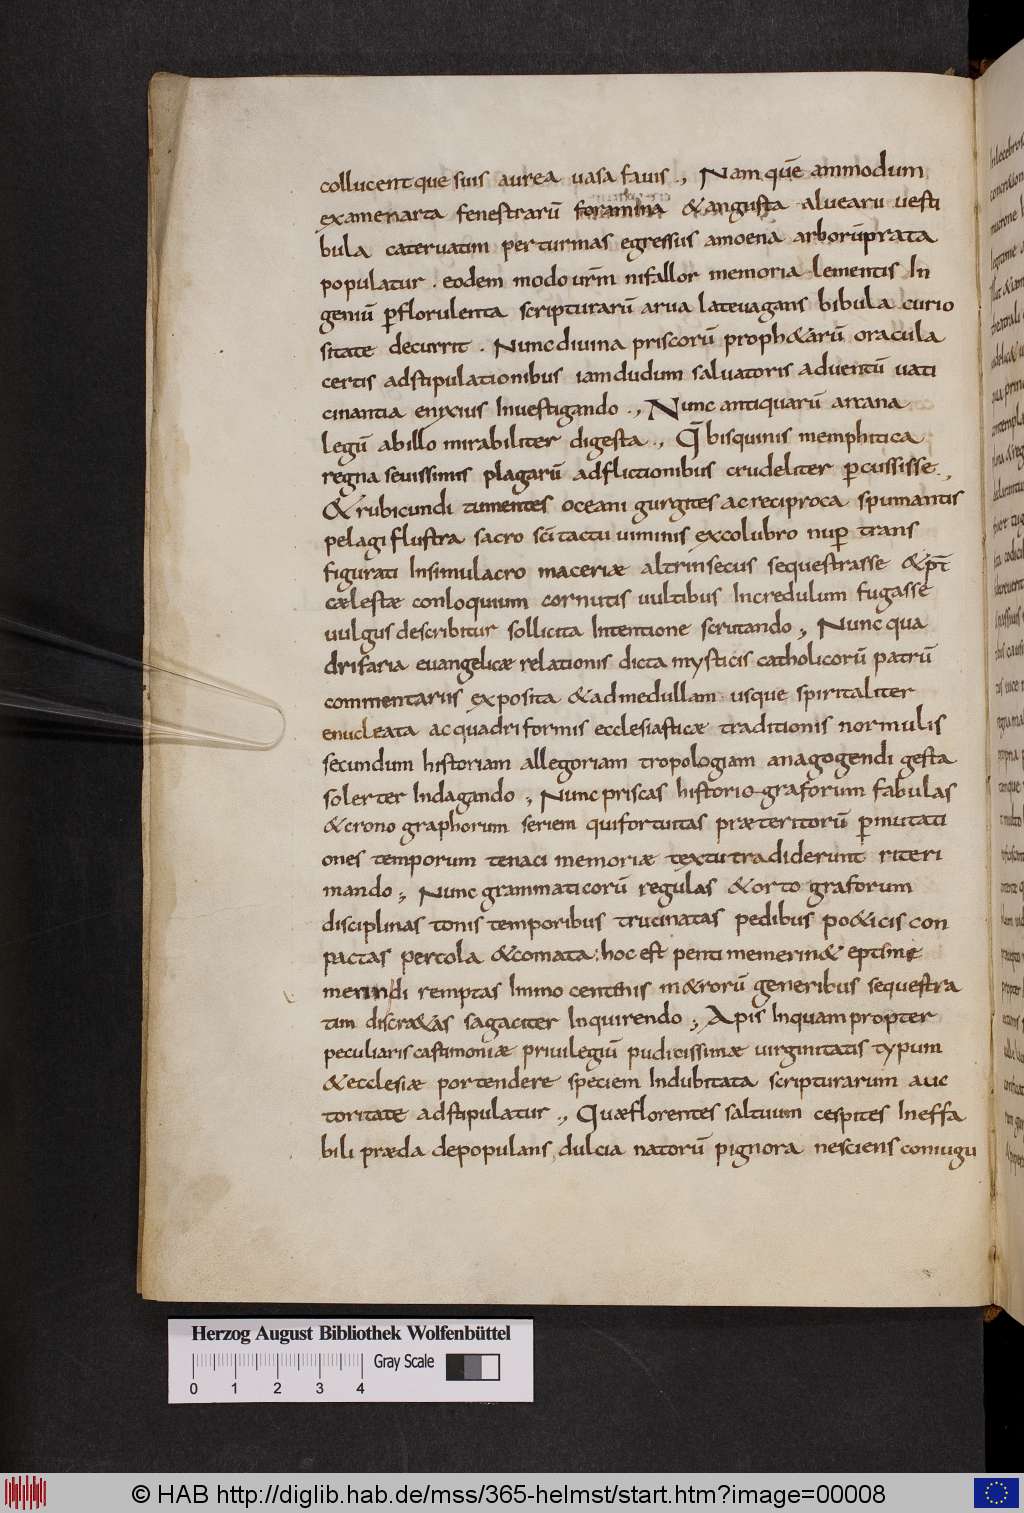 collucent que suis aurea uasa fauis ., Nam quē ammodum
examen arta fenestrarū foramina & angusta aluearii uesti
bula cateruatim per turmas egressus amoena arborū prata
populatur . eodem modo urm̄ nifallor memoria lementis In
geniū p̱florulenta scripturarū arua lateuagans bibula curio
sitate decurrit . Nunc diuina priscorū proph&arū oracula
certis adstipulationibus iamdudum saluatoris aduentū uati
cinantia enixius Inuestigando ., Nunc antiquarū arcana
legū ab illo mirabiliter digesta ., Q̄ bisquinis memphitica
regna seuissimis plagarū adflictionibus crudeliter p̱cussisse.,
& rubicundi tumentes oceani gurgites ac reciproca spumantis
pelagi flustra sacro sc̄i tactu uiminis excolubro nup̱ trans
figurati In simulacro maceriæ altrinsecus sequestrasse & p̄t
cælestæ conloquium cornutis uultibus Incredulum fugasse
uulgus describitur sollicita Intentione scrutando ; Nunc qua
drifaria euangelicæ relationis dicta mysticis catholicorū patrū
commentariis exposita & admedullam usque spiritaliter
enucleata ac quadriformis ecclesiasticæ traditionis normulis
secundum historiam allegoriam tropologiam anagogen di gesta
solerter Indagando ; Nunc priscas historio graforum fabulas
& crono graphorum seriem qui fortuitas præteritorū p̱mutati
ones temporum tenaci memoriæ textu tradiderunt riteri
mando ; Nunc grammaticorū regulas & orto graforum
disciplinas tonis temporibus trucinatas pedibus po&icis con
pactas percola & comata : hoc est pentimemerin& eptimi
merin di remptas Immo centenis m&rorū generibus sequestra
tim discr&as sagaciter Inquirendo ; Apis Inquam propter
peculiaris castimoniæ priuilegiū pudicissimæ uirginitatis typum
& ecclesiæ portendere speciem Indubitata scripturarum auc
toritate adstipulatur ., Quæ florentes saltuum cespites Ineffa
bili præda depopulans dulcia natorū pignora nesciens coniugii
Herzog August Bibliothek Wolfenbüttel
Gray Scale
0 1 2 3 4
© HAB http://diglib.hab.de/mss/365-helmst/start.htm?image=00008